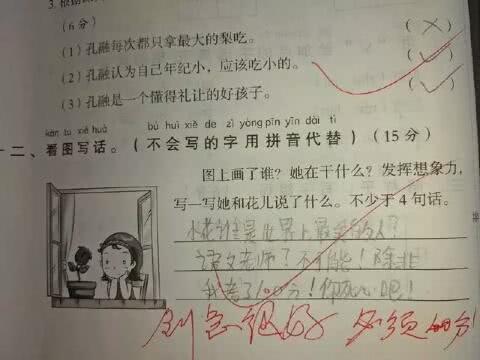 (6分)
(1)孔融每次都只拿最大的梨吃。 (×)
(2)孔融认为自己年纪小，应该吃小的。 (✓)
(3)孔融是一个懂得礼让的好孩子。 (✓)
kàn tú xiě huà bú huì xiě de zì yòng pīn yīn dài tì
十二、看图写话。(不会写的字用拼音代替)(15分)
图上画了谁？她在干什么？发挥想象力，
写一写她和花儿说了什么。不少于4句话。
小花谁是世界上最美的人？
语文老师？不可能！除非
我考了100分！你死心吧！
创意很好 必须100分！